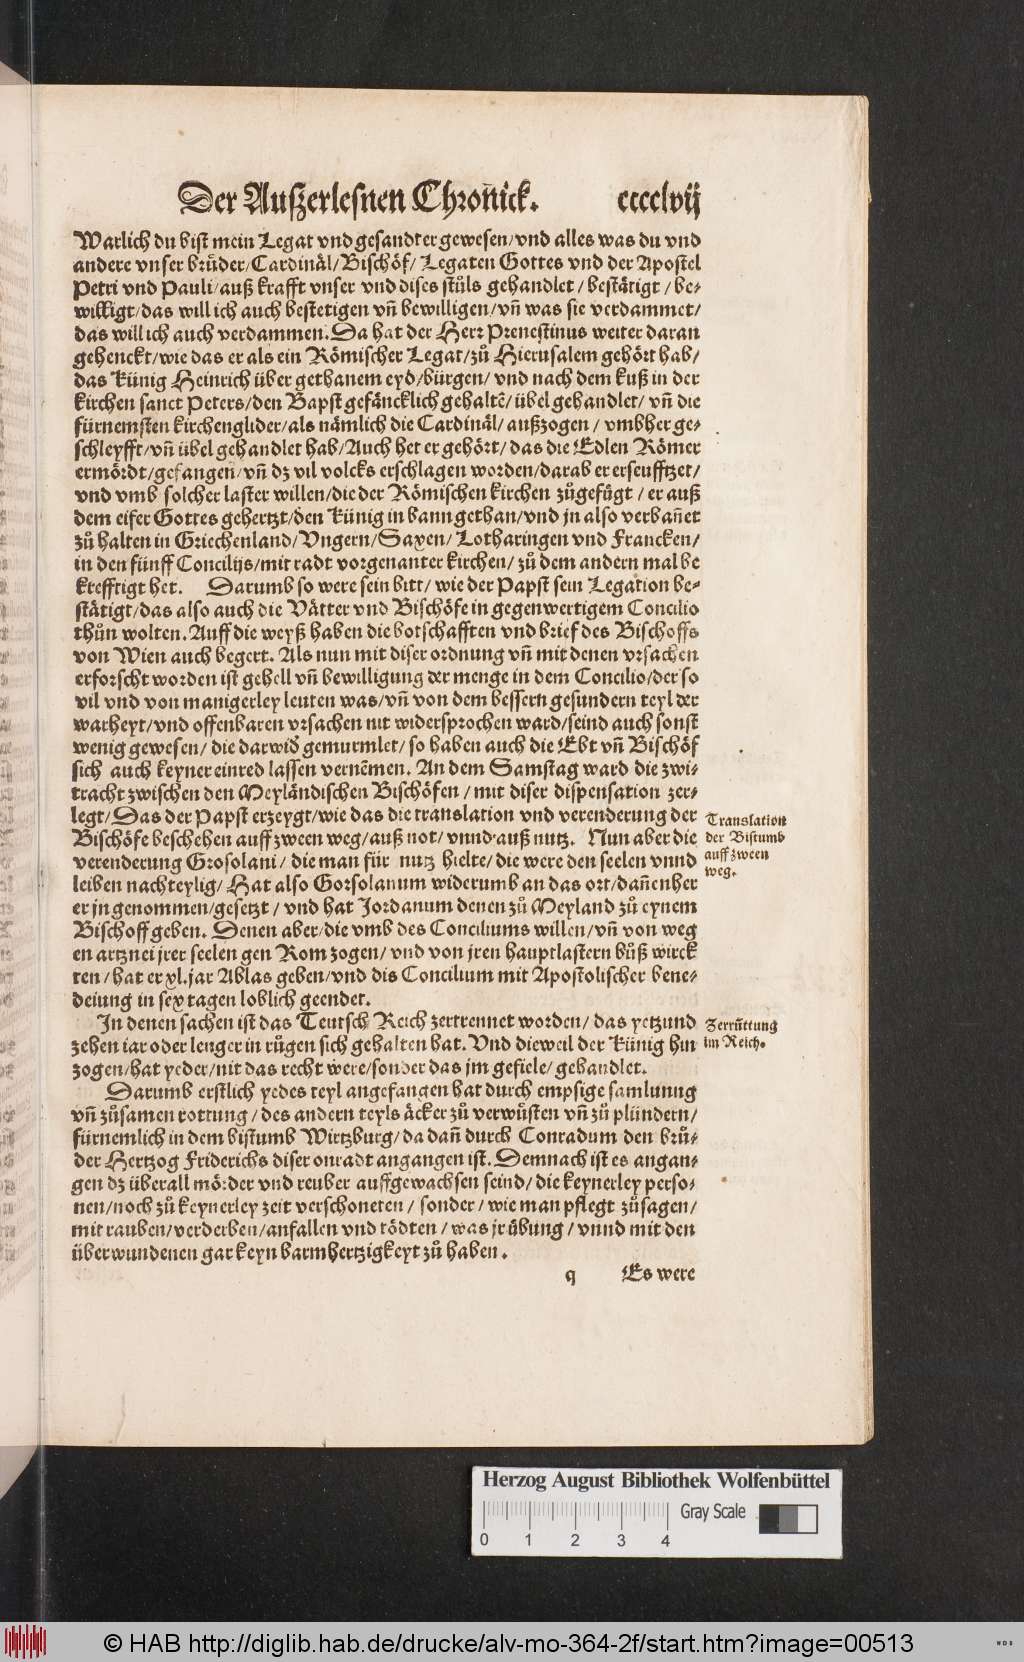 Der Außerlesnen Chroñick. cccclvij
Warlich du bist mein Legat vnd gesandter gewesen/vnd alles was du vnd
andere vnser brůder/Cardinäl/Bischöf/ Legaten Gottes vnd der Apostel
Petri vnd Pauli/auß krafft vnser vnd dises stůls gehandlet/bestätigt/be-
willigt/das will ich auch bestetigen vñ bewilligen/vñ was sie verdammet/
das will ich auch verdammen. Da hat der Herr Prenestinus weiter daran
gehenckt/wie das er als ein Römischer Legat/zů Hierusalem gehört hab/
das Künig Heinrich über gethanem eyd/bürgen/ vnd nach dem kuß in der
kirchen sanct Peters/den Bapst gefäncklich gehaltẽ/übel gehandlet/ vñ die
fürnemsten kirchenglider/als nämlich die Cardinäl/außzogen/ vmbher ge-
schleyfft/vñ übel gehandlet hab/Auch het er gehört/das die Edlen Römer
ermördt/gefangen/vñ dz vil volcks erschlagen worden/darab er erseufftzet/
vnd vmb solcher laster willen/die der Römischen kirchen zůgefügt/er auß
dem eifer Gottes gehertzt/den Künig in bann gethan/vnd jn also verbañet
zů halten in Griechenland/Vngern/Saxen/ Lotharingen vnd Francken/
in den fünff Concilijs/mit radt vorgenanter kirchen/zů dem andern mal be
krefftigt het. Darumb so were sein bitt/wie der Papst sein Legation be-
stätigt/das also auch die Vätter vnd Bischöfe in gegenwertigem Concilio
thůn wolten. Auff die weyß haben die botschafften vnd brief des Bischoffs
von Wien auch begert. Als nun mit diser ordnung vñ mit denen vrsachen
erforscht worden ist gehell vñ bewilligung der menge in dem Concilio/der so
vil vnd von manigerley leuten was/vñ von dem bessern gesundern teyl der
warheyt/vnd offenbaren vrsachen nit widersprochen ward/seind auch sonst
wenig gewesen/ die darwid̃ gemurmlet/so haben auch die Ebt vñ Bischöf
sich auch keyner einred lassen vernẽmen. An dem Samstag ward die zwi-
tracht zwischen den Meyländischen Bischöfen/mit diser dispensation zer-
legt/Das der Papst erzeygt/wie das die translation vnd verenderung der
Bischöfe beschehen auff zween weg/auß not/vnnd auß nutz. Nun aber die
verenderung Grosolani/die man für nutz hielte/die were den seelen vnnd
leiben nachteylig/Hat also Gorsolanum widerumb an das ort/dañenher
er jn genommen/gesetzt/vnd hat Jordanum denen zů Meyland zů eynem
Bischoff geben. Denen aber/die vmb des Conciliums willen/vñ von weg
en artznei jrer seelen gen Rom zogen/vnd von jren hauptlastern bůß wirck
ten/hat er xl.jar Ablas geben/vnd dis Concilium mit Apostolischer bene-
deiung in sex tagen loblich geendet.
Translation
der Bistumb
auff zween
weg.
In denen sachen ist das Teutsch Reich zertrennet worden/das yetzund
zehen iar oder lenger in růgen sich gehalten hat. Vnd dieweil der Künig hin
zogen/hat yeder/nit das recht were/sonder das jm gefiele/gehandlet.
Zerrüttung
im Reich.
Darumb erstlich yedes teyl angefangen hat durch empsige samlunng
vñ zůsamen rottung/des andern teyls äcker zů verwüsten vñ zů plündern/
fürnemlich in dem bistumb Wirtzburg/da dañ durch Conradum den brů-
der Hertzog Friderichs diser onradt angangen ist. Demnach ist es angan-
gen dz überall mörder vnd reuber auffgewachsen seind/die keynerley perso-
nen/noch zů keynerley zeit verschoneten/sonder/wie man pflegt zůsagen/
mit rauben/verderben/anfallen vnd tödten/was jr übung/vnnd mit den
überwundenen gar keyn barmhertzigkeyt zů haben.
q Es were
Herzog August Bibliothek Wolfenbüttel
Gray Scale
0 1 2 3 4
© HAB http://diglib.hab.de/drucke/alv-mo-364-2f/start.htm?image=00513